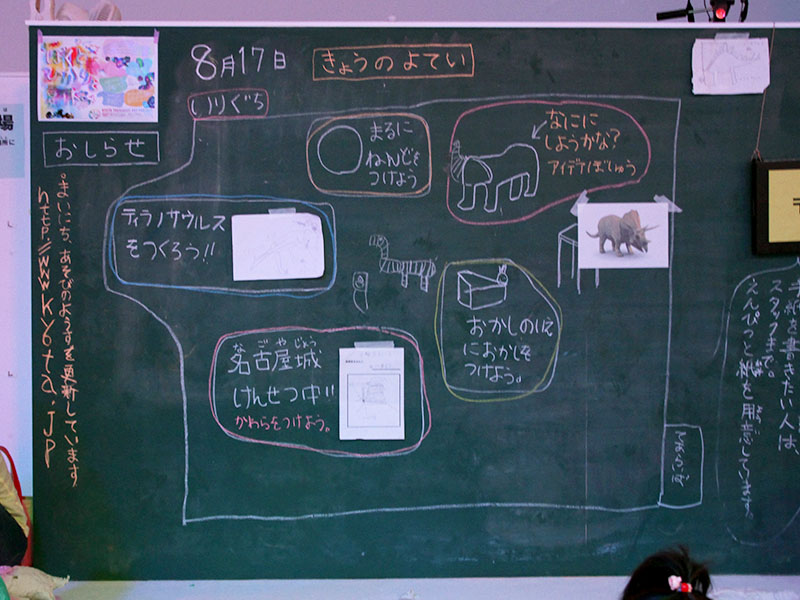 8月17日
きょうのよてい
いりぐち
おしらせ
まるに
ねんどを
つけよう
なにに
しようかな?
アイデアぼしゅう
ティラノサウルス
をつくろう!!
おかしのいえ
におかしを
つけよう。
なごやじょう
名古屋城
けんせつ中!!
かわらをつけよう。
。まいにち、あそびのようすを更新しています
http://www.kyota.jp
手紙を書きたい人は、
スタッフまで。
えんぴつと紙を用意しています。
場